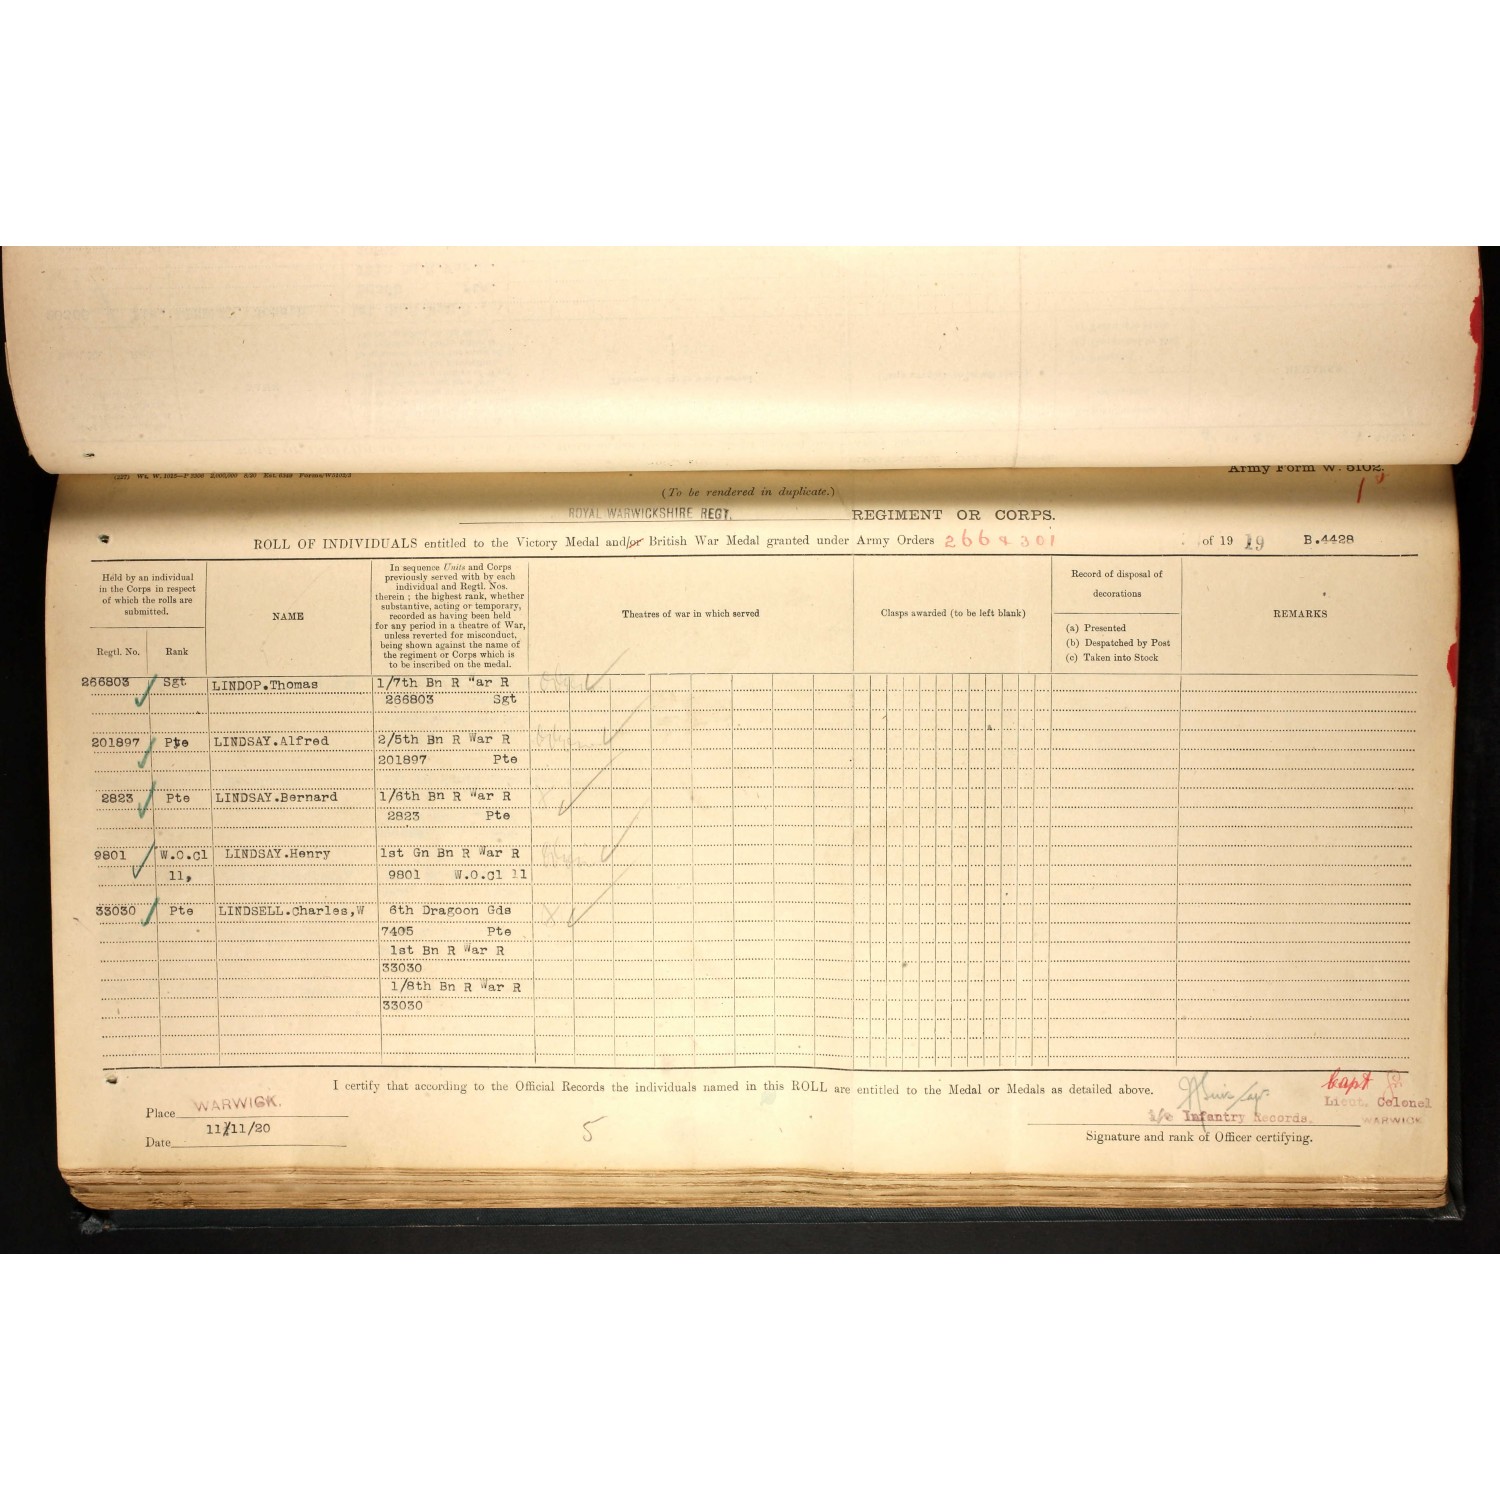 Army Form W. 5102.
(To be rendered in duplicate.)
ROYAL WARWICKSHIRE REGT. REGIMENT OR CORPS.
ROLL OF INDIVIDUALS entitled to the Victory Medal and/or British War Medal granted under Army Orders 266 & 301 of 19 19 B.4428
Held by an individual in the Corps in respect of which the rolls are submitted.
Regtl. No.
Rank
NAME
In sequence Units and Corps
previously served with by each
individual and Regtl. Nos.
therein ; the highest rank, whether
substantive, acting or temporary,
recorded as having been held
for any period in a theatre of War,
unless reverted for misconduct,
being shown against the name of
the regiment or Corps which is
to be inscribed on the medal.
Theatres of war in which served
Clasps awarded (to be left blank)
Record of disposal of
decorations
(a) Presented
(b) Despatched by Post
(c) Taken into Stock
REMARKS
266803 Sgt LINDOP.Thomas 1/7th Bn R "ar R
266803 Sgt
201897 Pte LINDSAY.Alfred 2/5th Bn R War R
201897 Pte
2823 Pte LINDSAY.Bernard 1/6th Bn R War R
2823 Pte
9801 W.O.Cl LINDSAY.Henry 1st Gn Bn R War R
11, 9801 W.O.Cl 11
33030 Pte LINDSELL.Charles,W 6th Dragoon Gds
7405 Pte
1st Bn R War R
33030
1/8th Bn R War R
33030
I certify that according to the Official Records the individuals named in this ROLL are entitled to the Medal or Medals as detailed above.
Place WARWICK.
Date 11/11/20
5
Capt
Lieut. Colonel
i/c Infantry Records.
WARWICK
Signature and rank of Officer certifying.